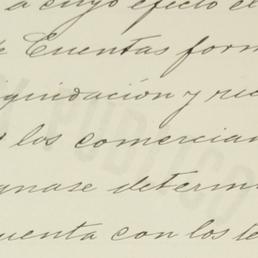 a cuyo efecto el
de Cuentas form
iquidación y rec
los comercian
gnase determi
uenta con los te
PUBLICO